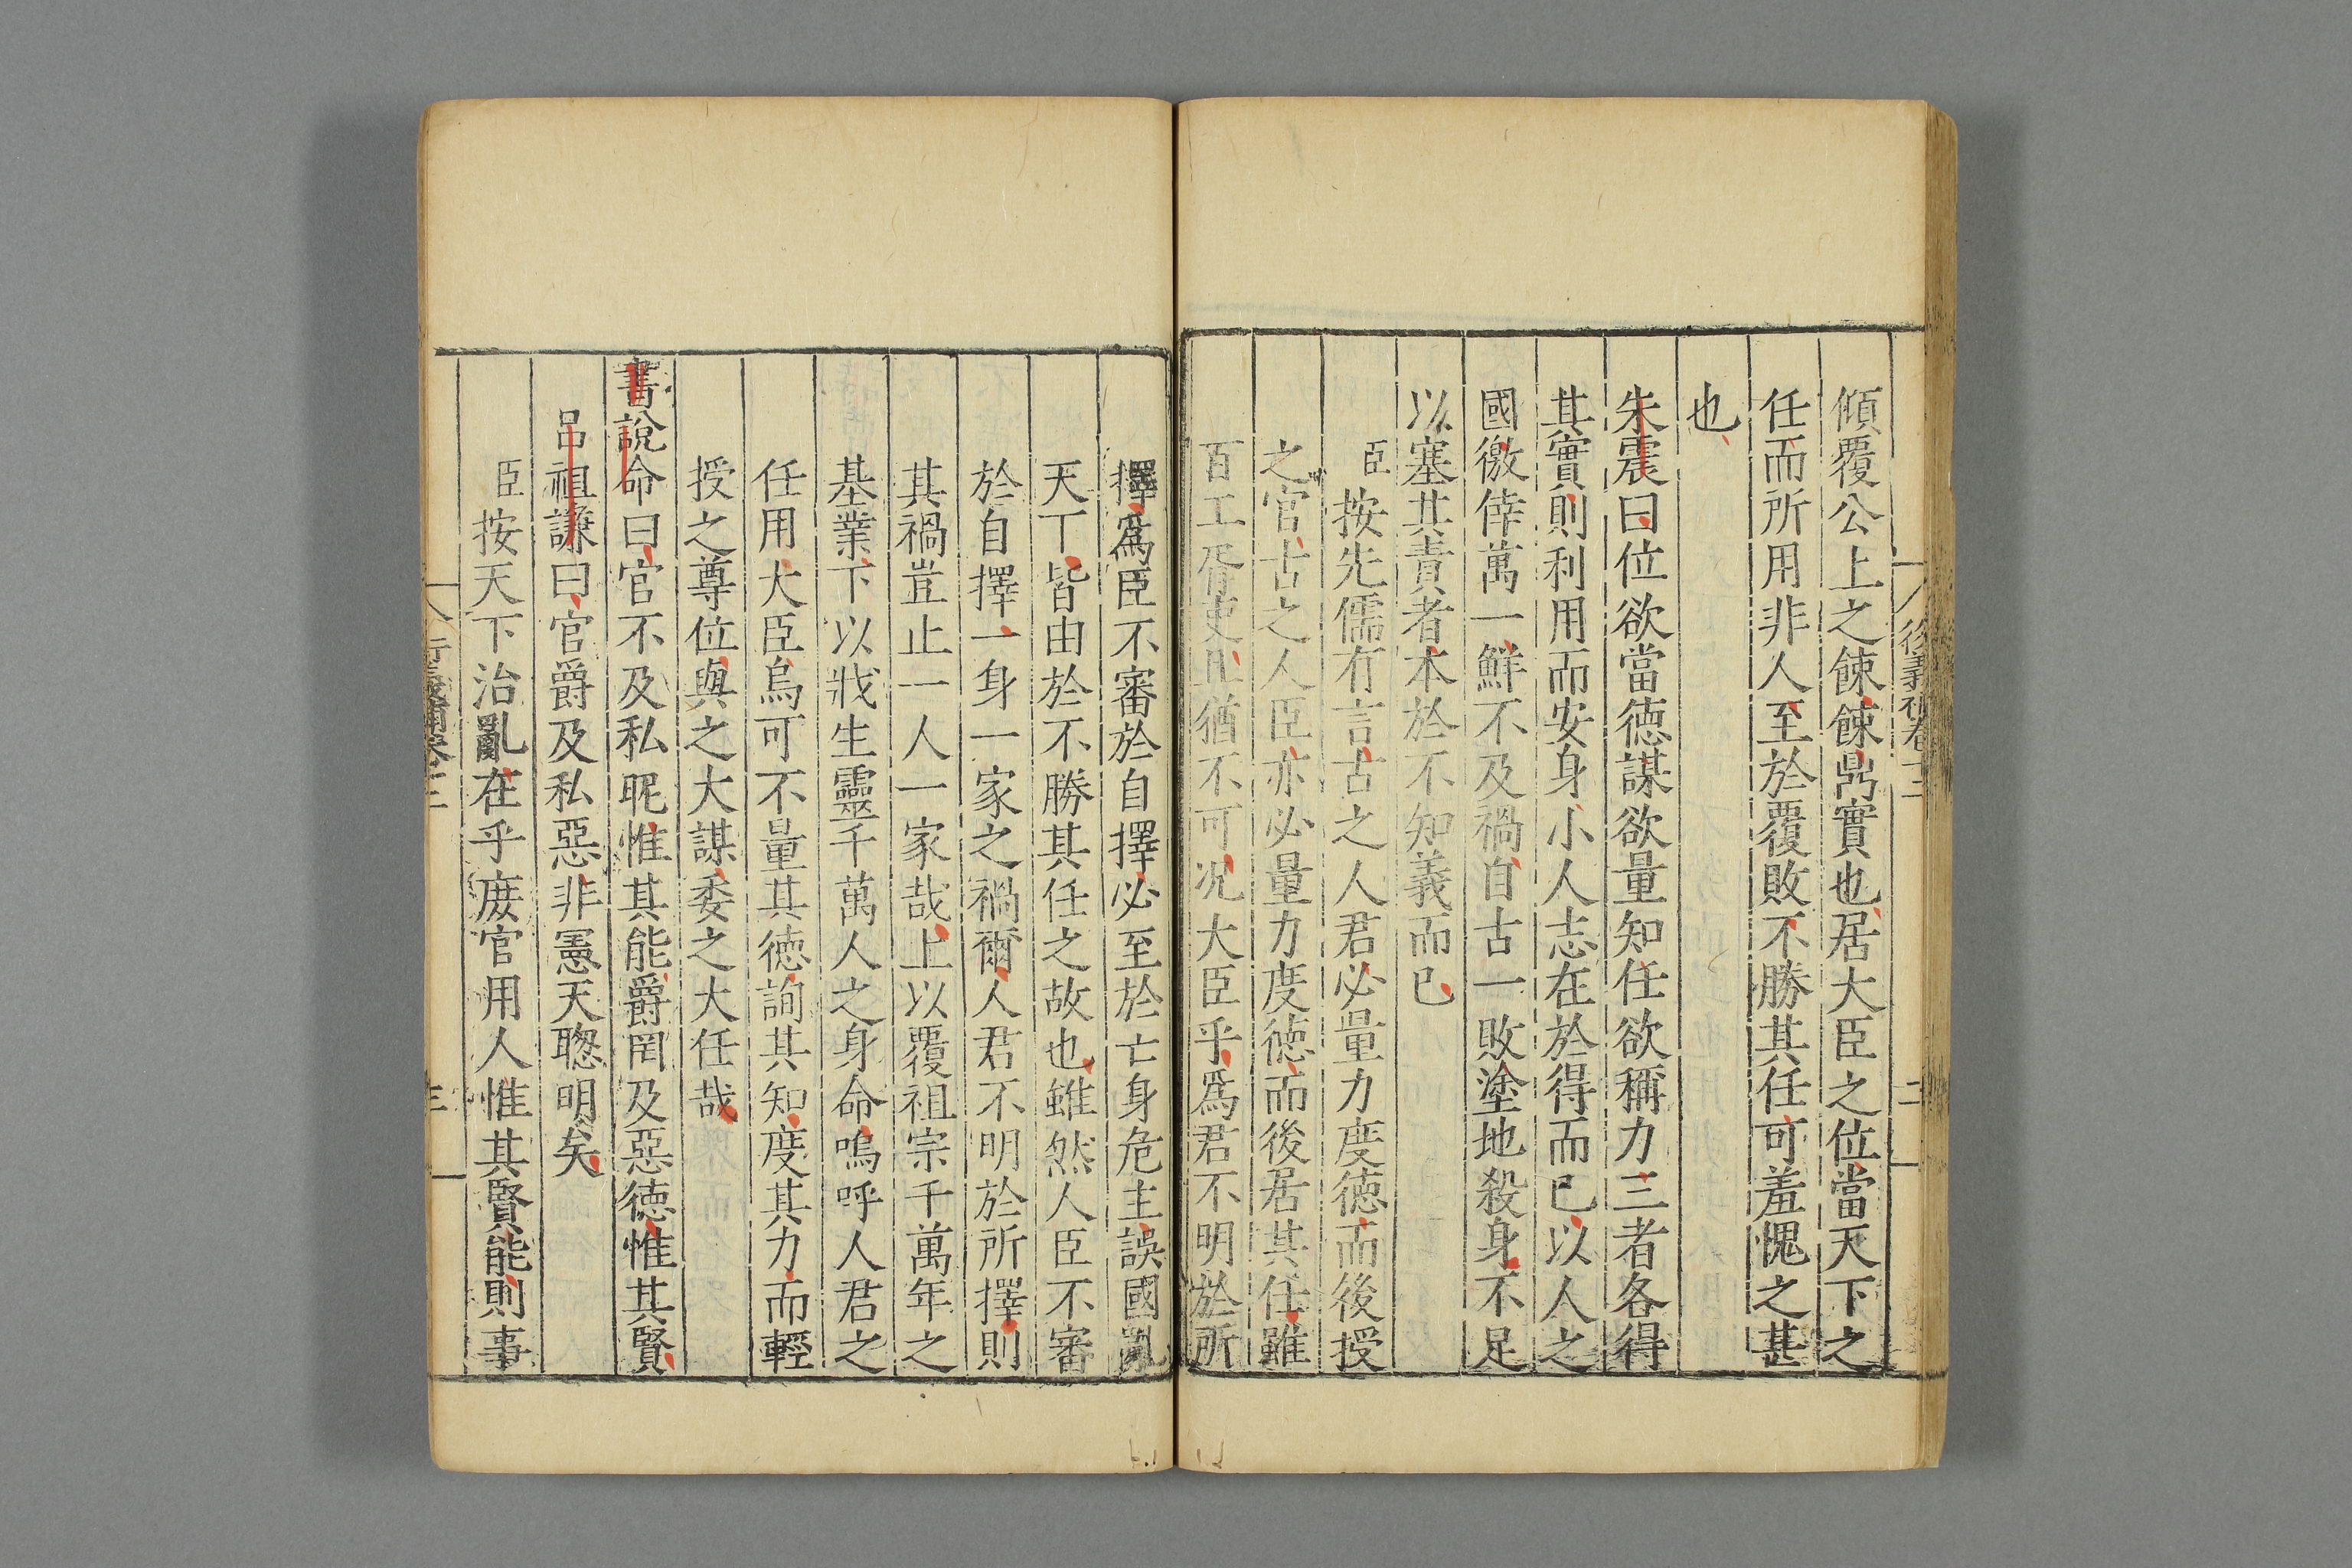 傾覆公上之餗餗鼎實也居大臣之位當天下之
任而所用非人至於覆敗不勝其任可羞愧之甚
也
朱震曰位欲當德謀欲量知任欲稱力三者各得
其實則利用而安身小人志在於得而已以人之
國徼倖萬一鮮不及禍自古一敗塗地殺身不足
以塞其責者本於不知義而已
臣按先儒有言古之人君必量力度德而後授
之官古之人臣亦必量力度德而後居其任雖
百工胥吏且猶不可况大臣乎爲君不明於所
擇爲臣不審於自擇必至於亡身危主誤國亂
天下皆由於不勝其任之故也雖然人臣不審
於自擇一身一家之禍爾人君不明於所擇則
其禍豈止一人一家哉上以覆祖宗千萬年之
基業下以戕生靈千萬人之身命嗚呼人君之
任用大臣烏可不量其德詢其知度其力而輕
授之尊位與之大謀委之大任哉
書說命曰官不及私昵惟其能爵罔及惡德惟其賢
呂祖謙曰官爵及私惡非憲天聰明矣
臣按天下治亂在乎庻官用人惟其賢能則事